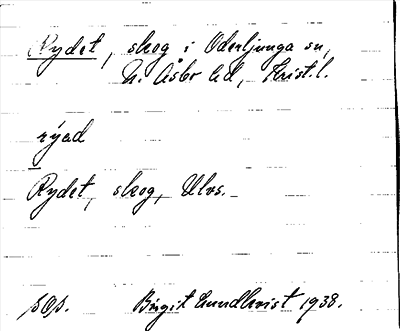 Rydet, skog i Oderljunga sn,
N. Åsbo hd, Krist. l.
rýad
Rydet, skog, Utvs.
p Op. Birgit Lundkvist 1938.